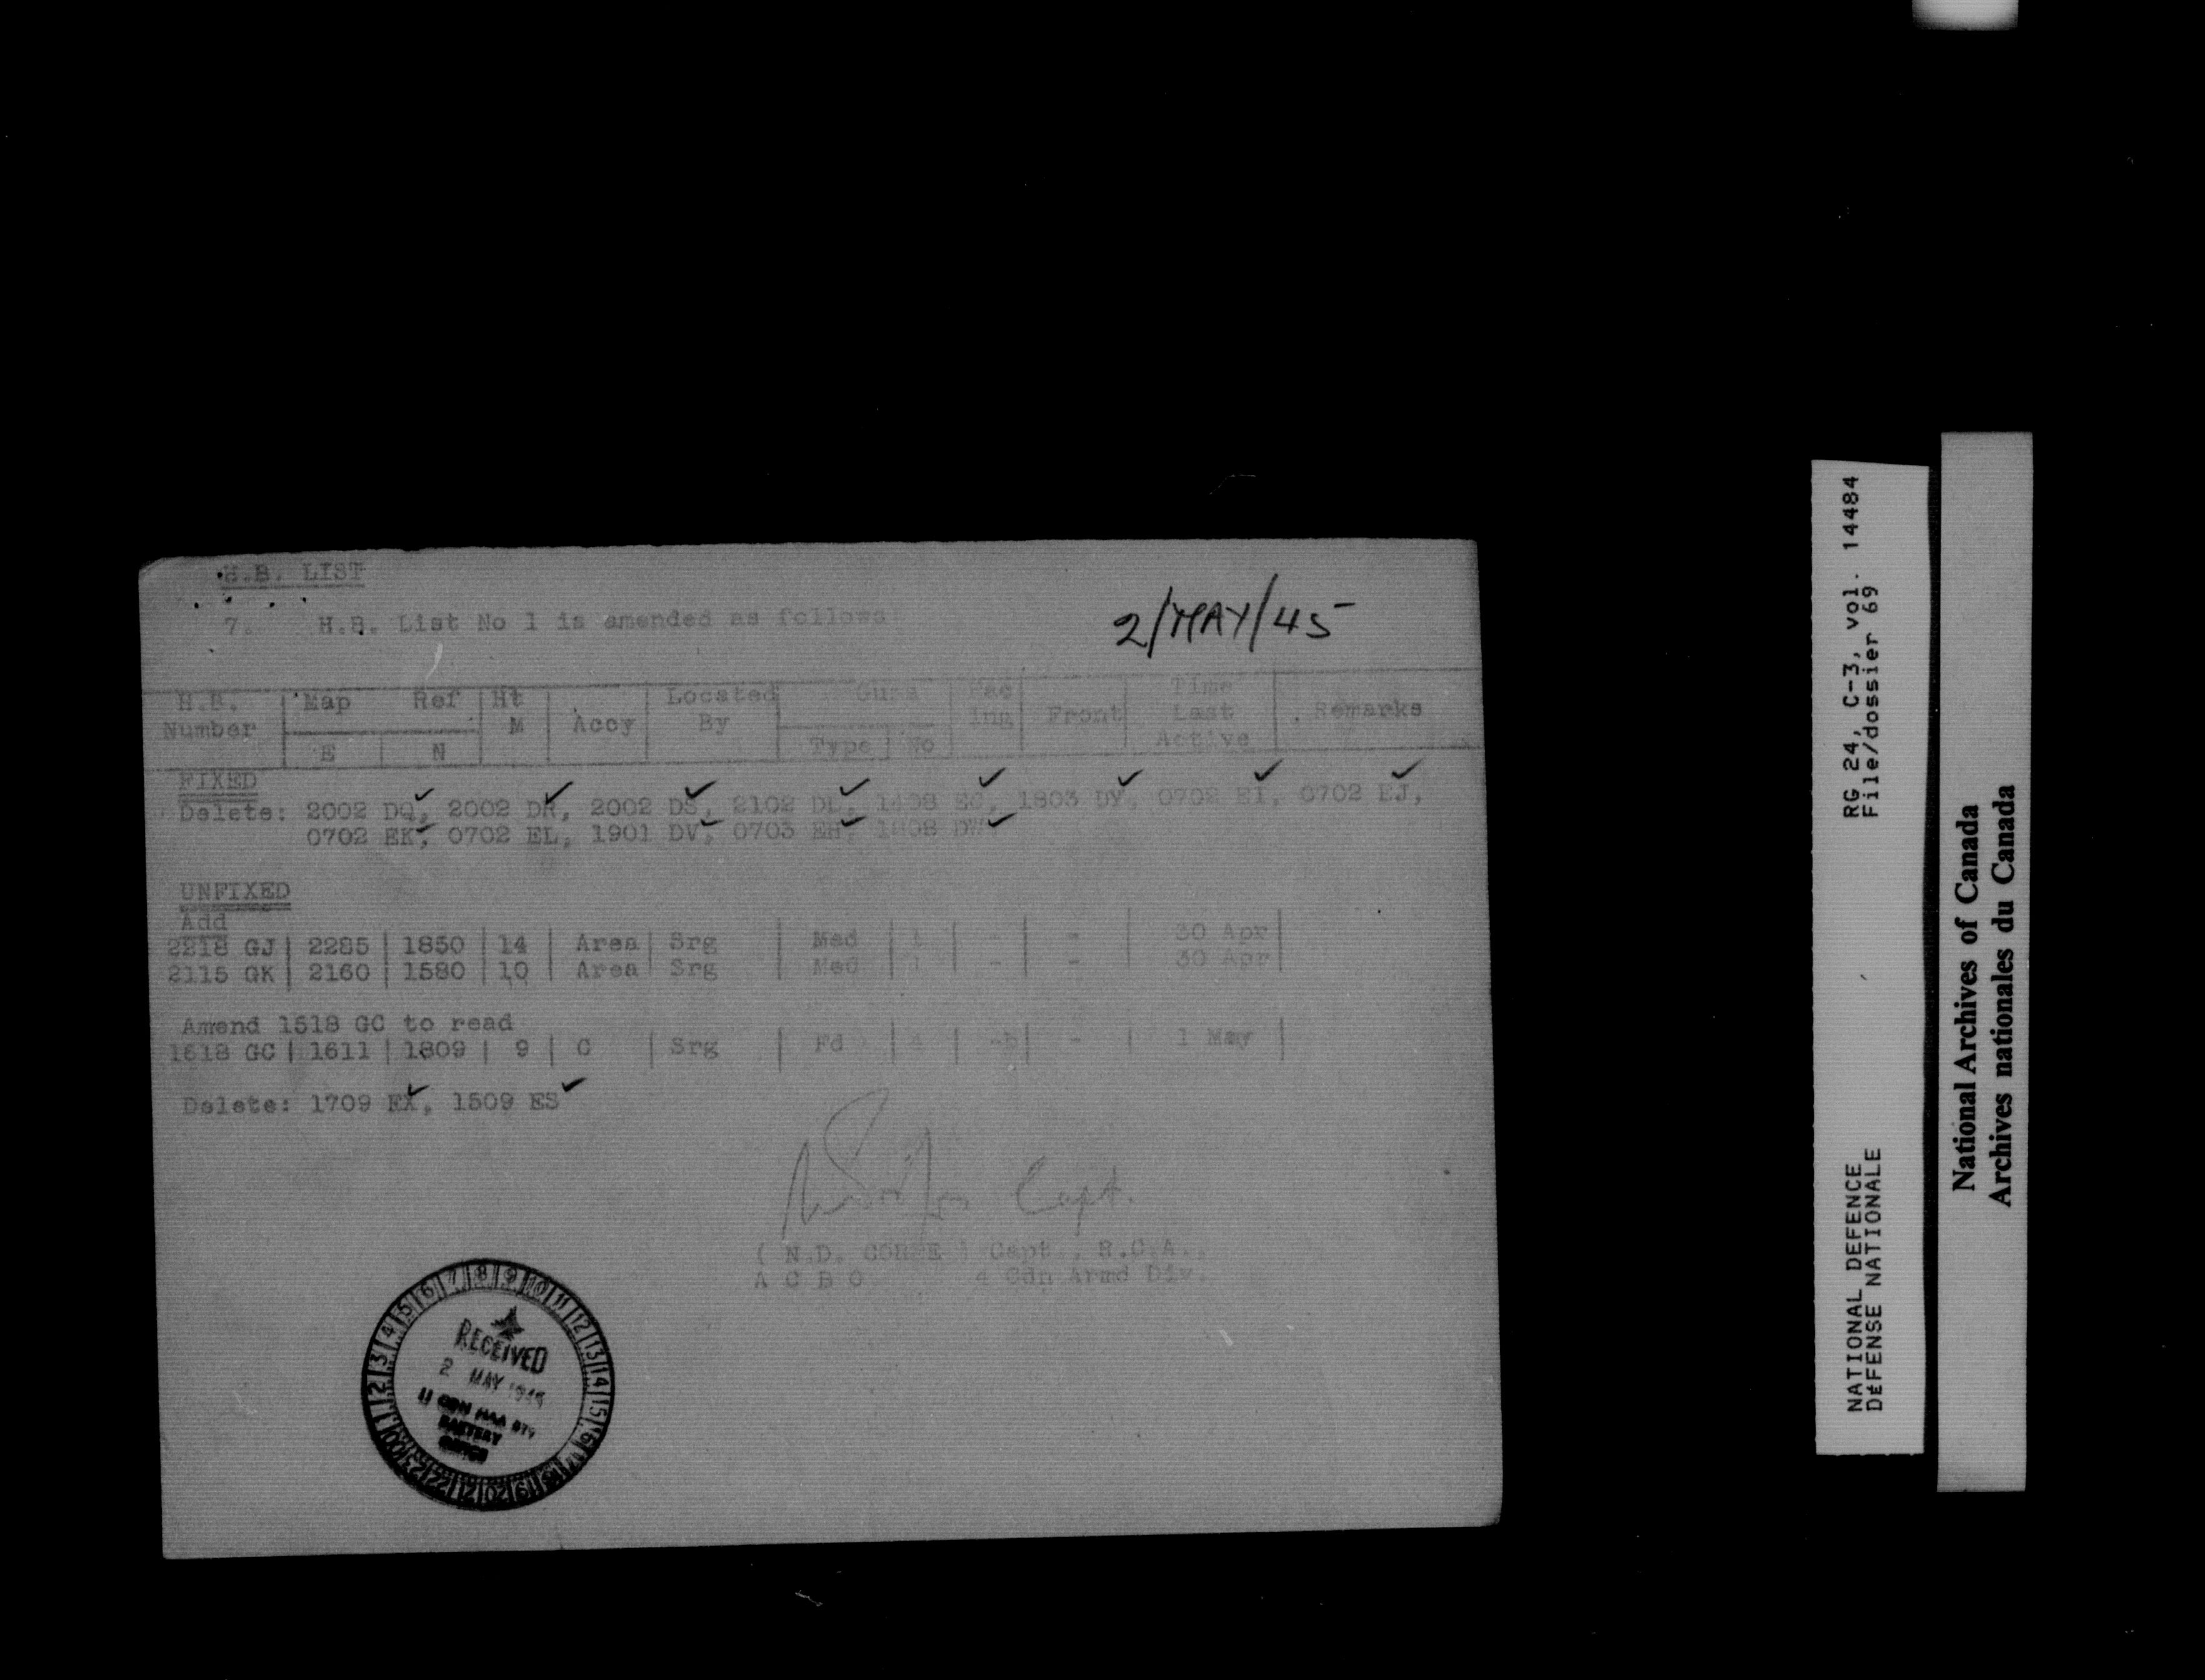 H.B. LIST
7. H.B. List No 1 is amended as follows
2/MAY/45
H.B. Number | Map Ref E N | Ht M | Accy | Located By | Guns Type No | Fac ing | Front | Time Last Active | Remarks
FIXED
Delete: 2002 DQ, 2002 DR, 2002 DS, 2102 DL, EC, 1803 DY, 0702 EI, 0702 EJ,
0702 EK, 0702 EL, 1901 DV, 0703 EH, DW
UNFIXED
Add
2218 GJ | 2285 | 1850 | 14 | Area | Srg | Med | 1 | - | - | 30 Apr |
2115 GK | 2160 | 1580 | 10 | Area | Srg | Med | 1 | - | - | 30 Apr |
Amend 1618 GC to read
1618 GC | 1611 | 1809 | 9 | C | Srg | Fd | | - | 1 May |
Delete: 1709 EX, 1509 ES
Capt.
( N.D. ) Capt., R.C.A.,
A C B O 4 Cdn Armd Div.
1 2 3 4 5 6 7 8 9 10 11 12 13 14 15 16 17 18 19 20 21 22 23 00
RECEIVED
2 MAY 1945
BATTERY
RG 24, C-3, vol. 14484
File/dossier 69
NATIONAL DEFENCE
DÉFENSE NATIONALE
National Archives of Canada
Archives nationales du Canada